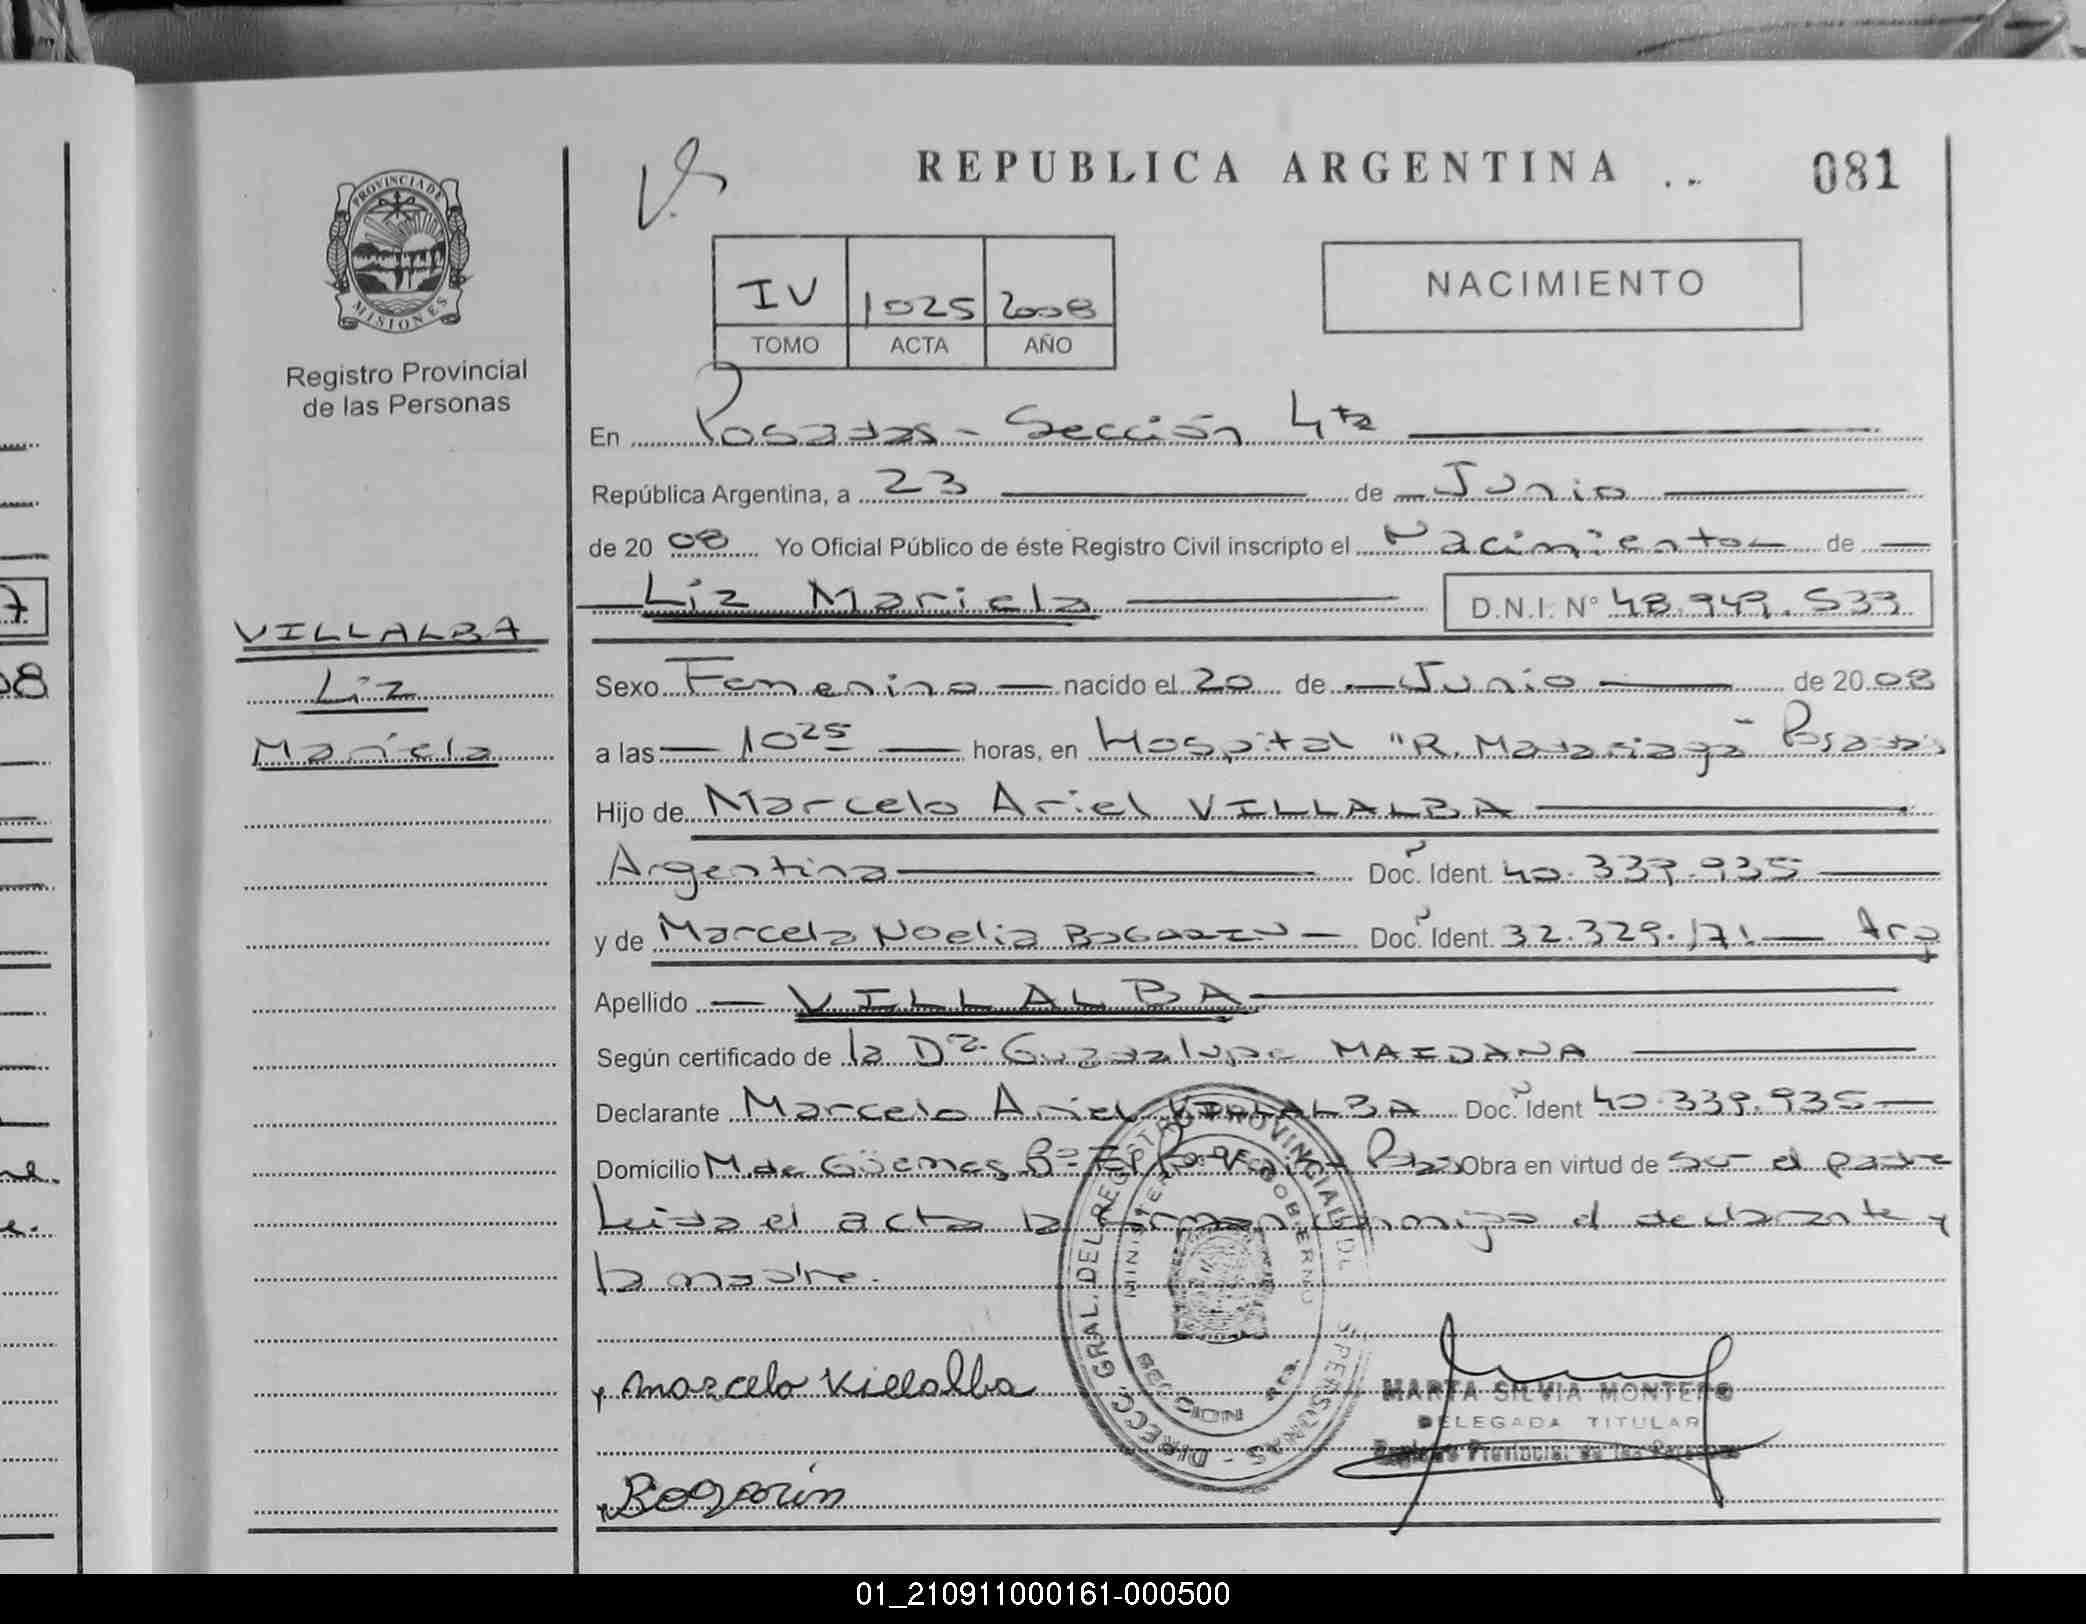 REPUBLICA ARGENTINA
081
PROVINCIA DE
MISIONES
Registro Provincial
de las Personas
IV 1025 2008
TOMO ACTA AÑO
NACIMIENTO
En Posadas - Sección 4ta
República Argentina, a 23 de Junio
de 20 08 Yo Oficial Público de éste Registro Civil inscripto el Nacimiento de
Liz Mariela D.N.I. N° 48.949.533
VILLALBA
Liz
Mariela
Sexo Femenino nacido el 20 de Junio de 20 08
a las 10 25 horas, en Hospital "R. Madariaga" Posadas
Hijo de Marcelo Ariel VILLALBA
Argentina Doc. Ident. 40.339.935
y de Marcela Noelia BOGARIN Doc. Ident. 32.329.171. Arg
Apellido VILLALBA
Según certificado de la Dra. Guadalupe MAIDANA
Declarante Marcelo Ariel VILLALBA Doc. Ident 40.339.935
Domicilio M. de Güemes Bº Obra en virtud de ser el padre
Leida el acta la firman conmigo el declarante y
la madre.
marcelo Villalba
Bogarin
DIRECC. GRAL. DEL REGISTRO PROVINCIAL DE PERSONAS
MINISTER GOBIERNO
MARTA SILVIA MONTERO
DELEGADA TITULAR
Registro Provincial de las Personas
7
08
01_210911000161-000500